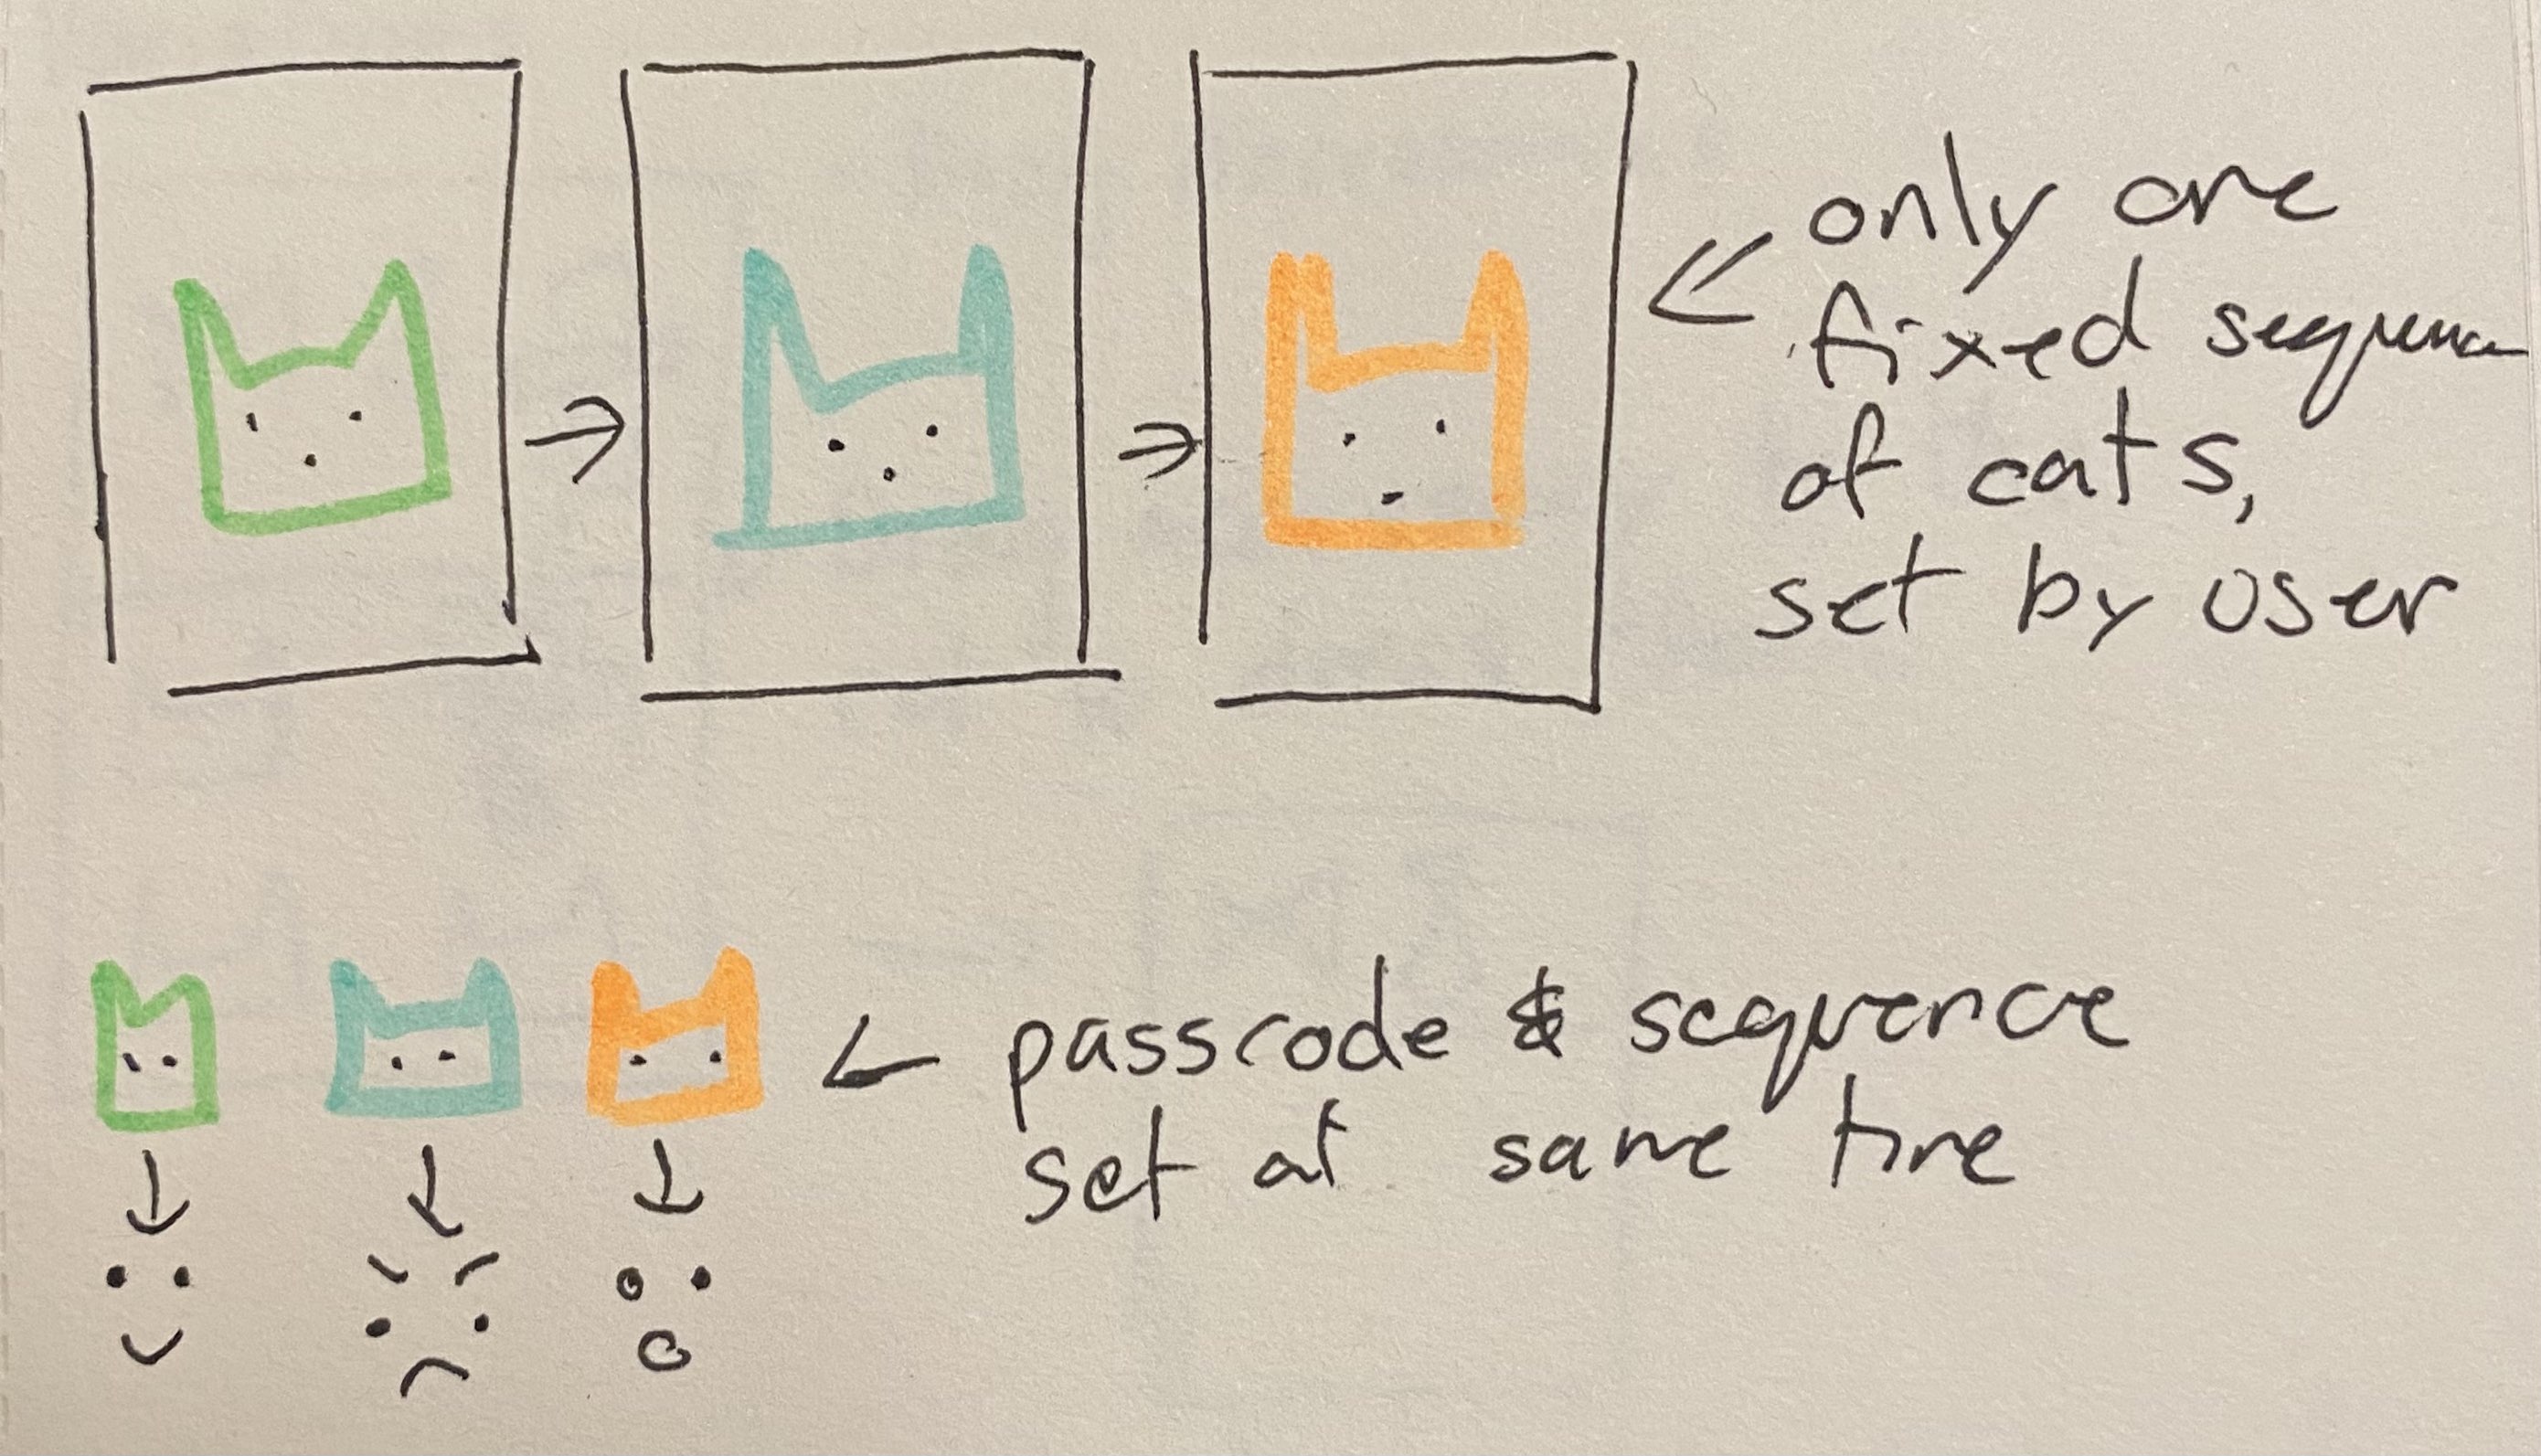 only one
fixed sequence
of cats,
set by user
passcode & sequence
set at same time